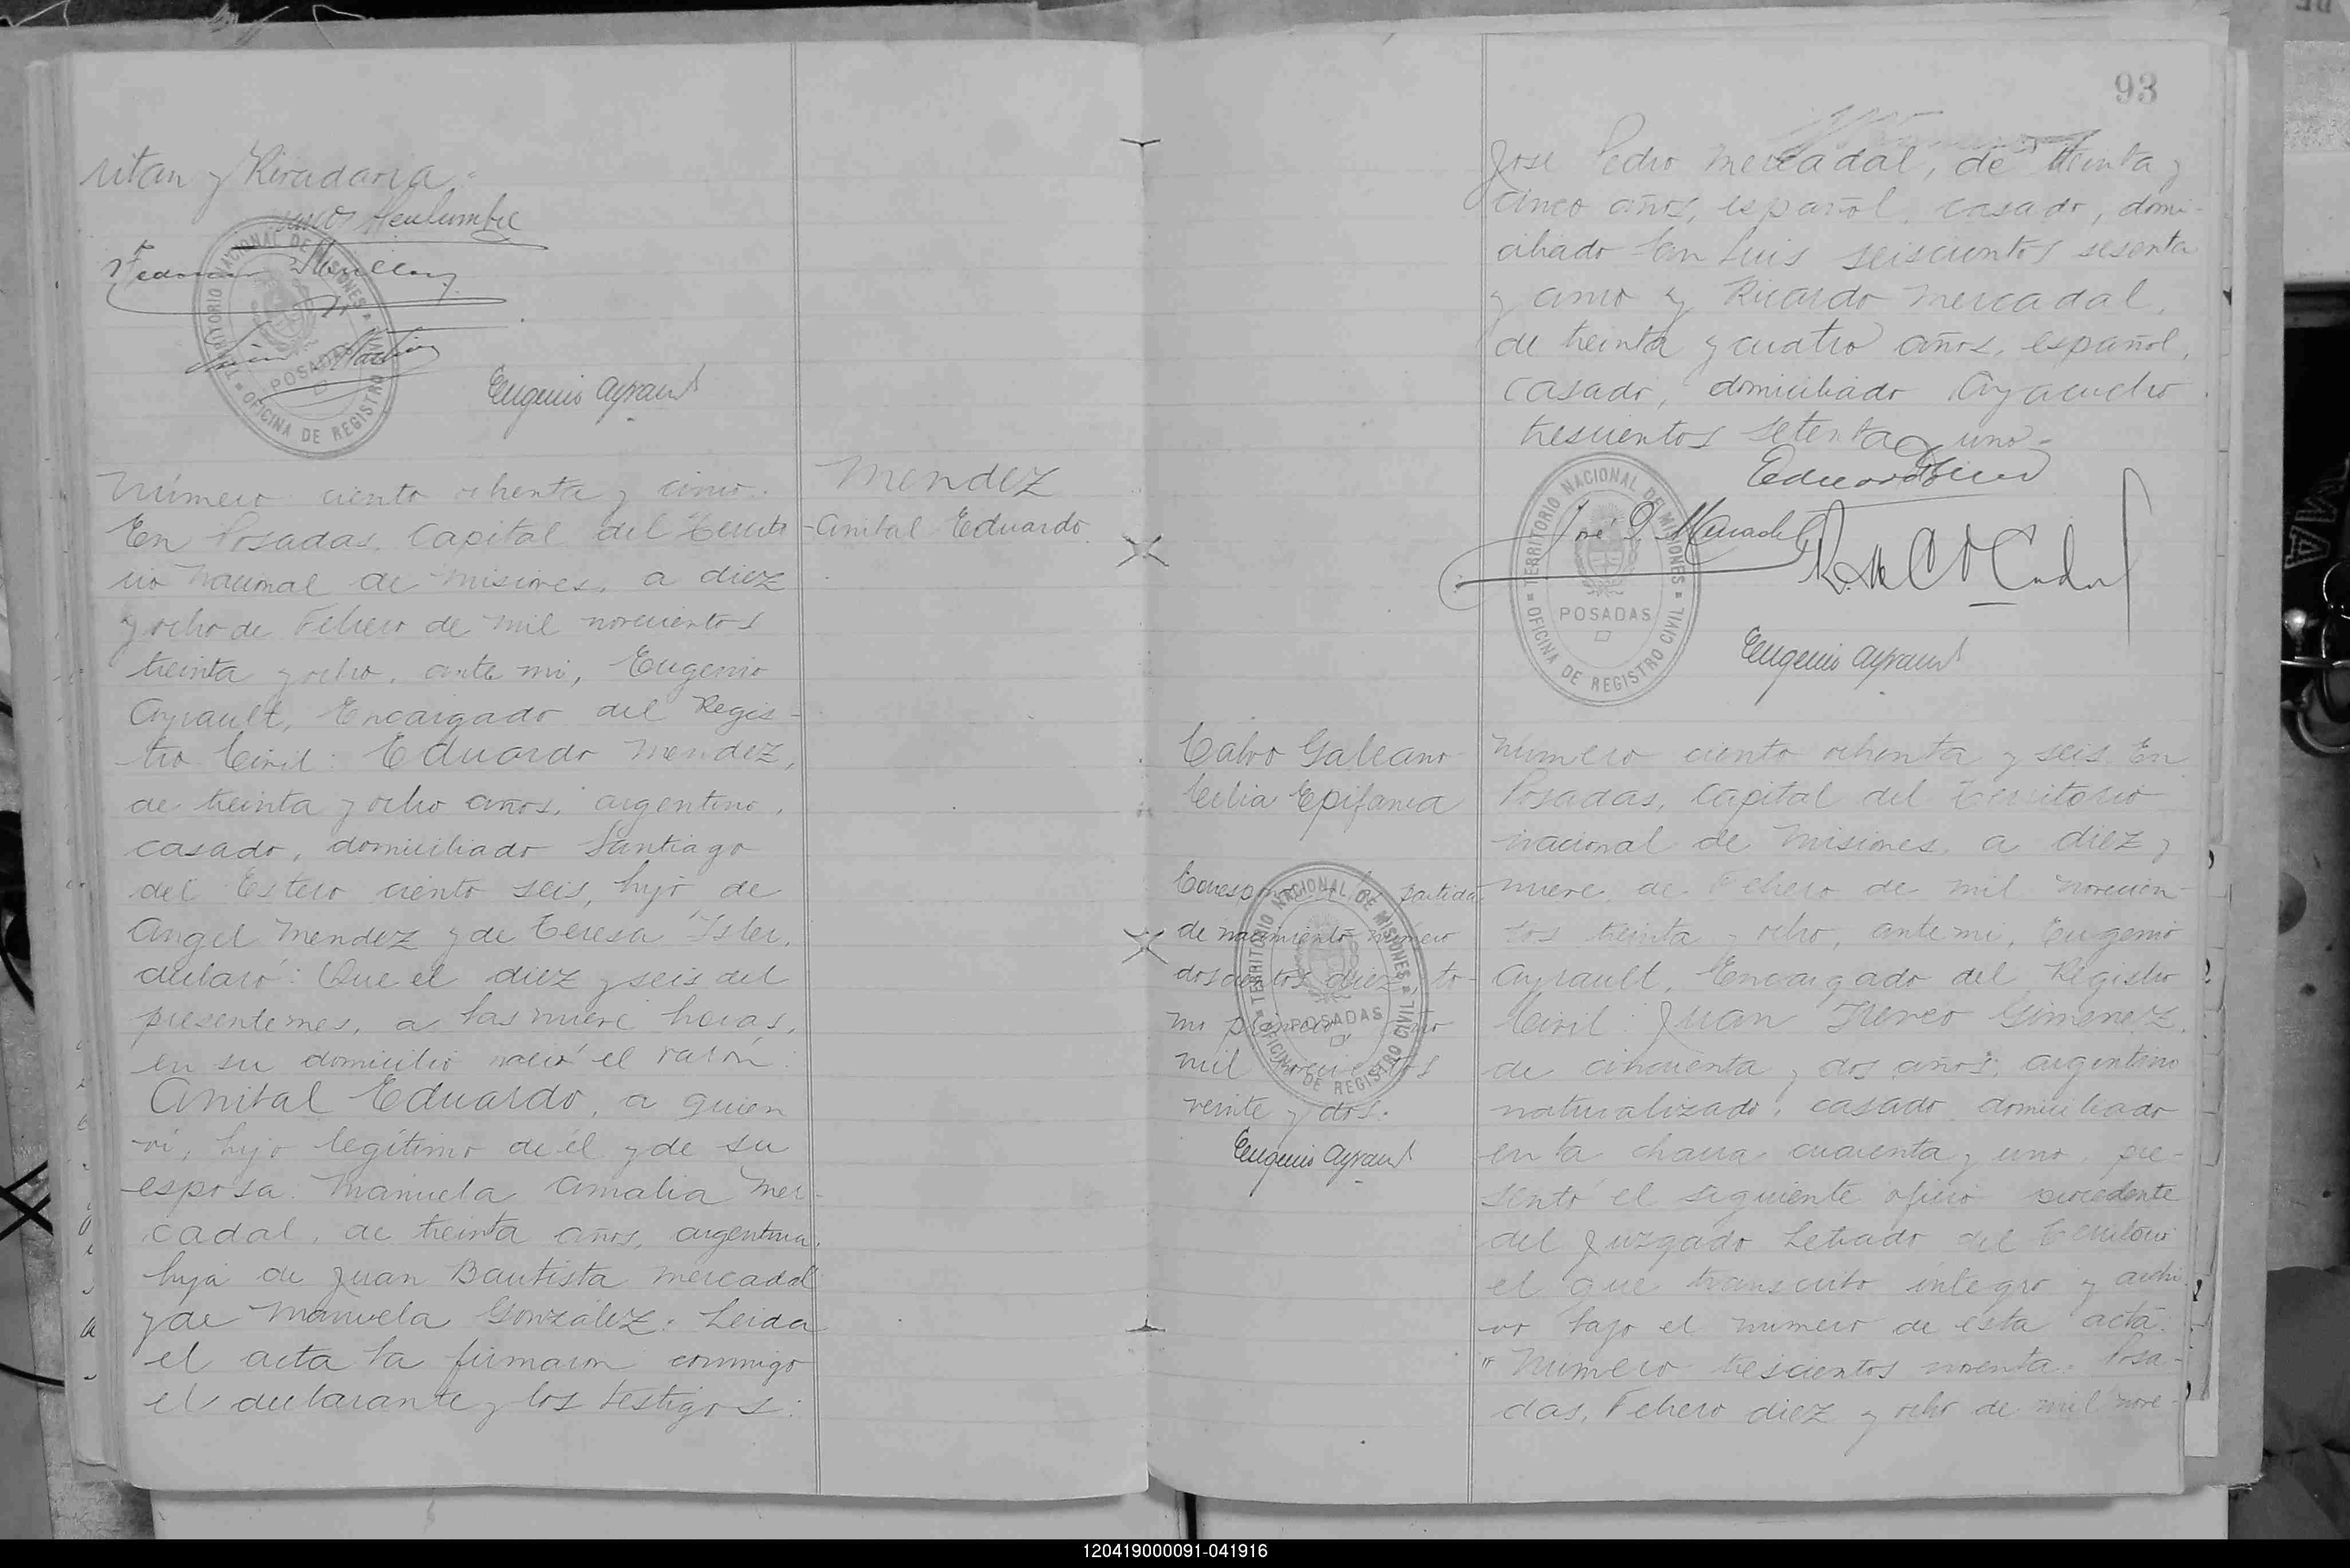 ritan y Rivadavia.-
Eugenio Ayrault
Mendez
Anibal Eduardo.
Número ciento ochenta y cinco.
En Posadas, Capital del Territo
rio Nacional de Misiones, a diez
y ocho de Febrero de mil novecientos
treinta y ocho, ante mi, Eugenio
Ayrault, Encargado del Regis-
tro Civil: Eduardo Mendez,
de treinta y ocho años, argentino,
casado, domiciliado Santiago
del Estero ciento seis, hijo de
Angel Mendez y de Teresa Isler,
declaró: Que el diez y seis del
presente mes, a las nueve horas,
en su domicilio nació el varón:
Anibal Eduardo, a quien
vi, hijo legítimo de él y de su
esposa: Manuela Amalia Mer-
cadal, de treinta años, argentina,
hija de Juan Bautista Mercadal
y de Manuela González. Leida
el acta la firmaron conmigo
el declarante y los testigos:
TERRITORIO NACIONAL DE MISIONES
POSADAS
OFICINA DE REGISTRO CIVIL
93
José Pedro Mercadal, de treinta y
cinco años, español, casado, domi-
ciliado San Luis seiscientos sesenta
y cinco y Ricardo Mercadal,
de treinta y cuatro años, español,
casado, domiciliado Ayacucho
trescientos setenta y uno.-
José P. Mercadal
TERRITORIO NACIONAL DE MISIONES
POSADAS
OFICINA DE REGISTRO CIVIL
Eugenio Ayrault
Calvo Galeano
Celia Epifania
Corresponde partida
de nacimiento número
doscientos diez, to-
mo primero
mil novecientos
veinte y dos.
Eugenio Ayrault
TERRITORIO NACIONAL DE MISIONES
POSADAS
OFICINA DE REGISTRO CIVIL
Número ciento ochenta y seis. En
Posadas, Capital del Territorio
nacional de Misiones, a diez y
nueve de Febrero de mil novecien-
tos treinta y ocho, ante mi, Eugenio
Ayrault, Encargado del Registro
Civil: Juan Ireneo Gimenez,
de cincuenta y dos años, argentino
naturalizado, casado, domiciliado
en la chacra cuarenta y uno, pre-
sentó el siguiente oficio procedente
del Juzgado Letrado del Territorio
el que transcrito íntegro y archi-
vo bajo el número de esta acta:
"Número trescientos noventa. Posa-
das, Febrero diez y ocho de mil nove-
120419000091-041916